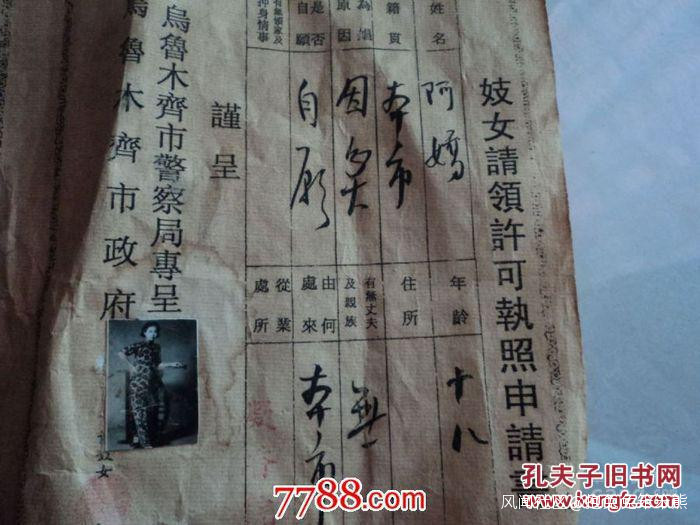 妓女請領許可執照申請書
姓名
阿嬌
年齡
十八
籍貫
本市
住所
為娼
原因
因貧
有無丈夫
及親族
無
是否
自願
自願
由何
處來
本市
有無領家及
從業
處所
謹呈
烏魯木齊市警察局專呈
烏魯木齊市政府
妓女
7788.com
孔夫子旧书网
www.kongfz.com